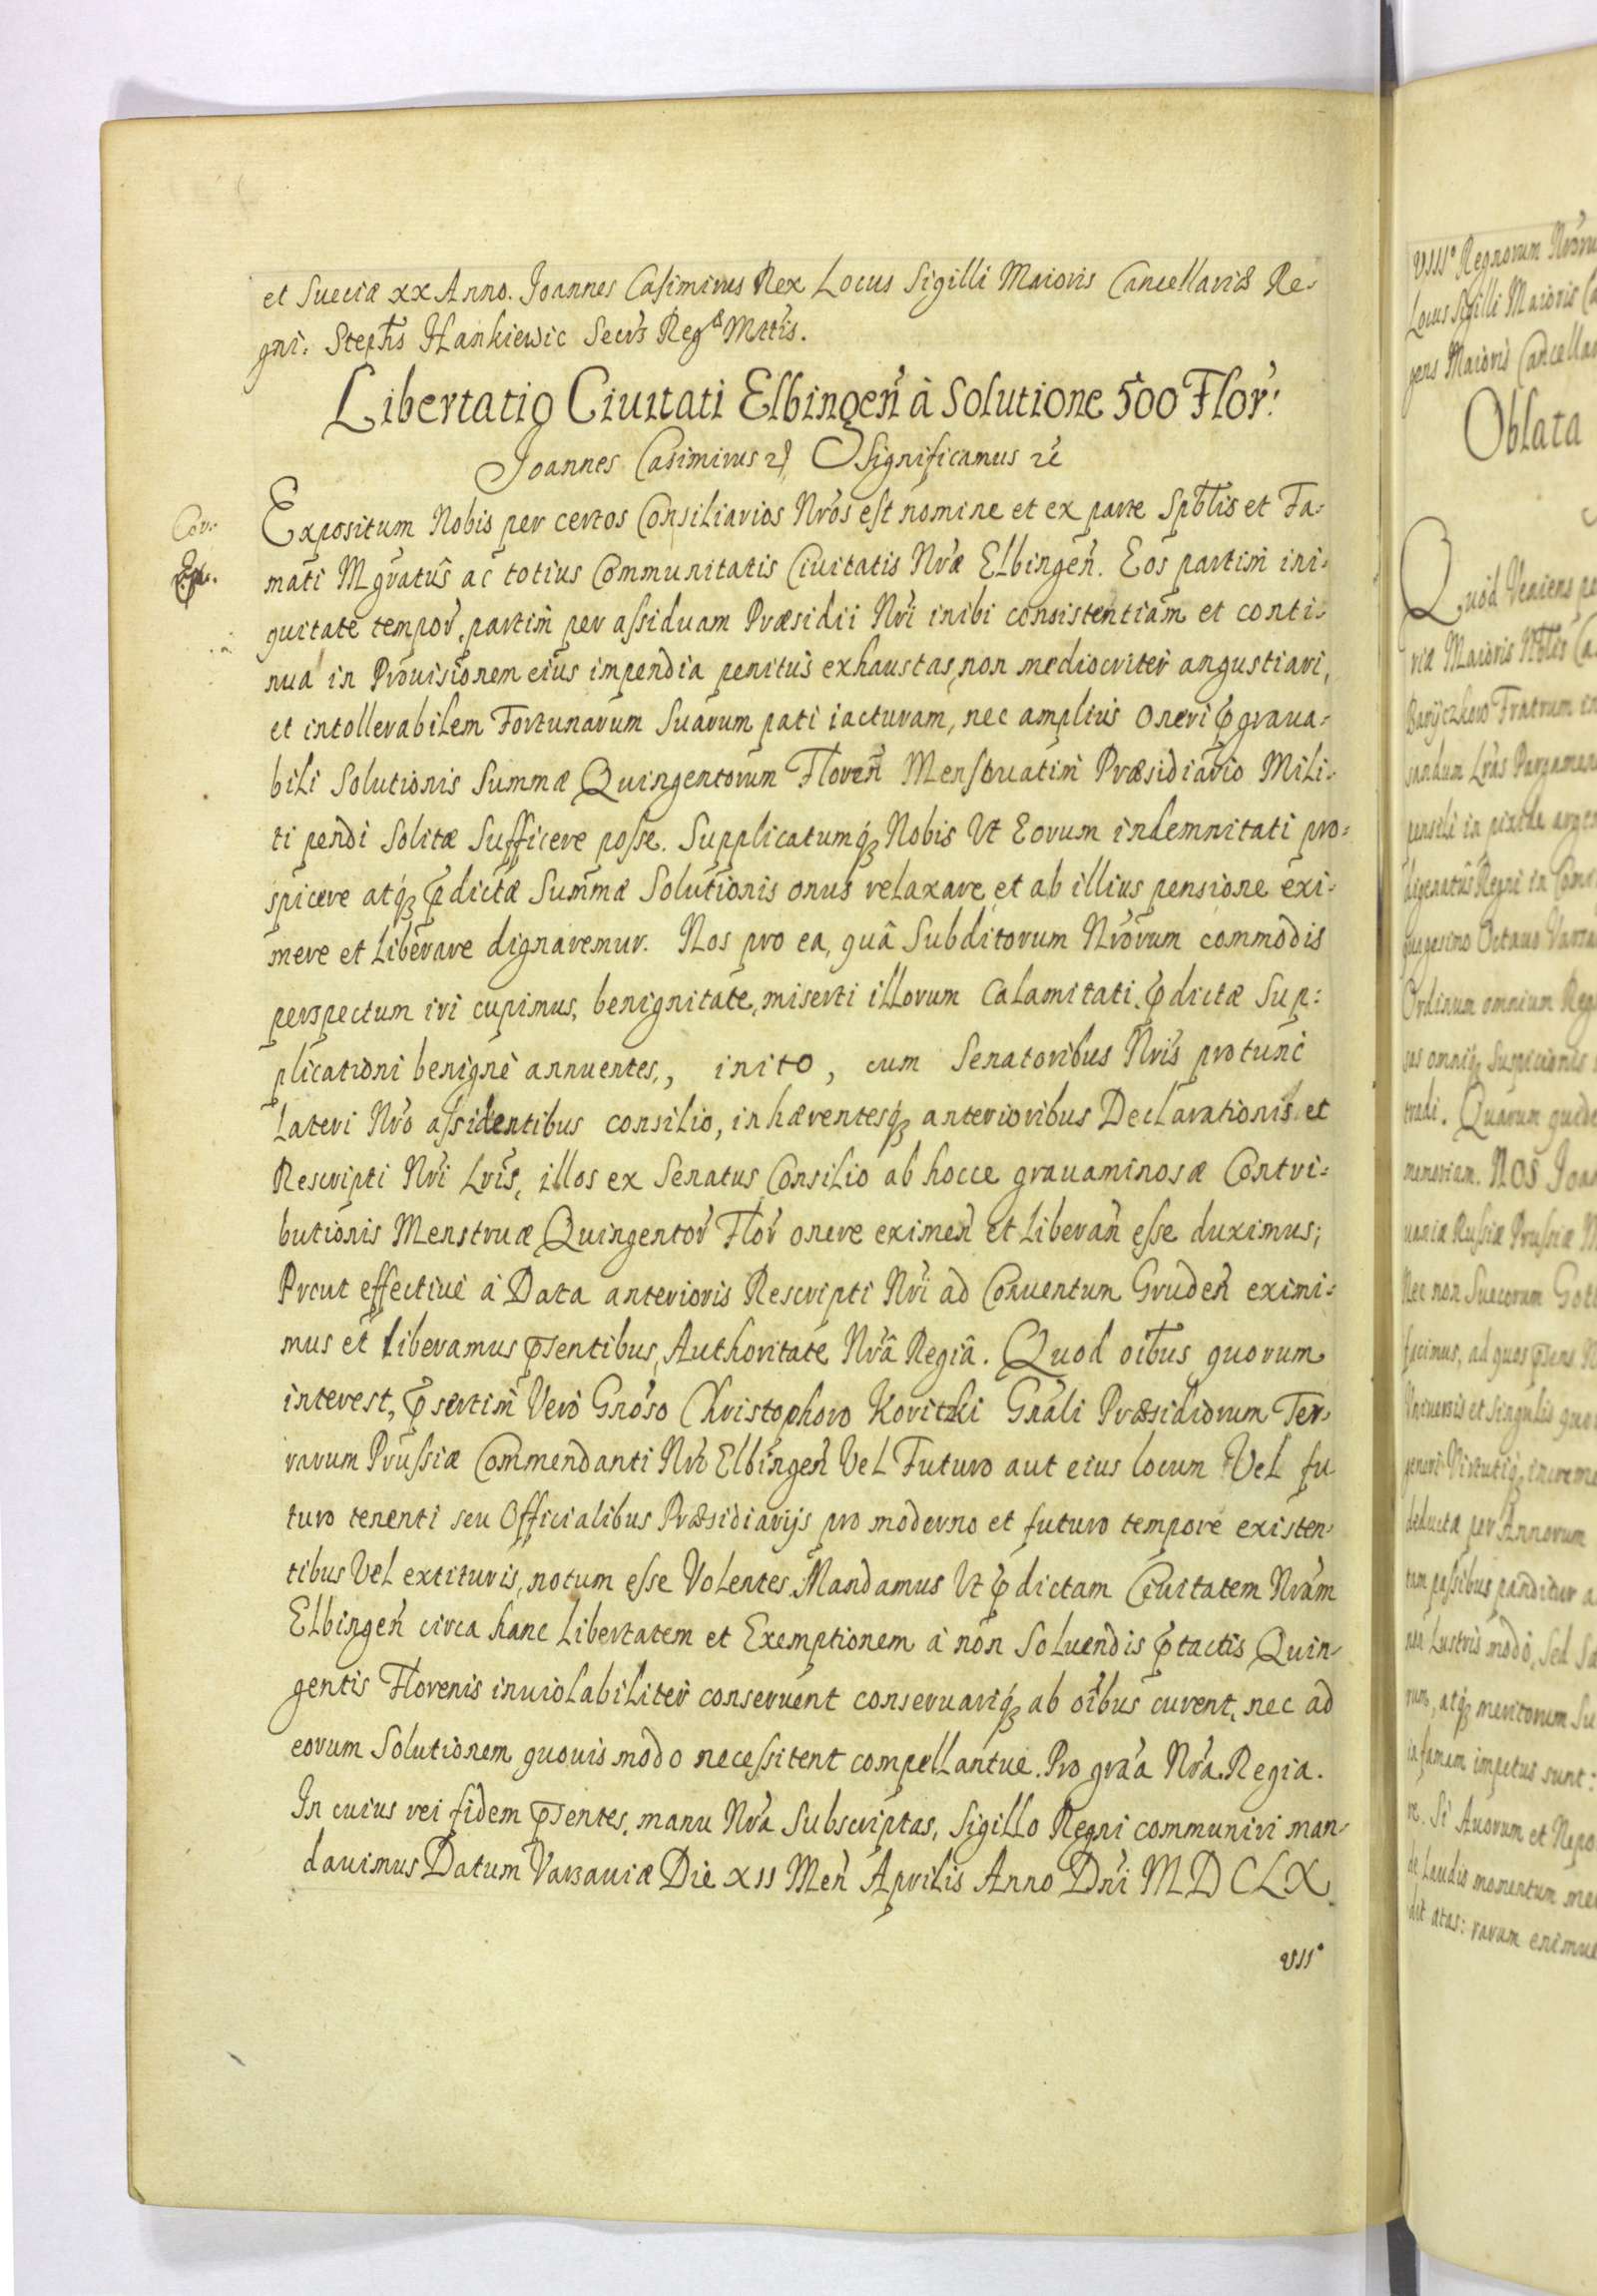 et Sueciæ xx Anno. Joannes Casimirus Rex Locus Sigilli Maioris Cancellariæ Re-
gni: Stephs Hankiewic Secrs Regæ Mttis.
Libertatio Ciuitati Elbingen̄ à Solutione 500 Flor:
Joannes Casimirus Significamus
Cor:
Expositum Nobis per certos Consiliarios Nros est nomine et ex parte Spblis et Fa-
mati Mgratûs ac totius Communitatis Ciuitatis Nræ Elbingen̄. Eos partim ini-
quitate tempor, partim per assiduam Præsidii Nri inibi consistentiam et conti-
nua in Prouisionem eius impendia penitus exhaustas, non mediocriter angustiari,
et intollerabilem Fortunarum Suarum pati iacturam, nec amplius oneri p̄graua-
bili Solutionis Summæ Quingentorum Floren̄ Menstruatim Præsidiario Mili-
ti pendi Solitæ Sufficere posse. Supplicatumq́ꝫ Nobis Vt Eorum indemnitati pro-
spicere atq́ꝫ p̄dictæ Summæ Solutionis onus relaxare et ab illius pensione exi-
mere et Liberare dignaremur. Nos pro ea, quâ Subditorum Nrorum commodis
perspectum iri cupimus, benignitate, miserti illorum Calamitati p̄dictæ Sup:
plicationi benignè annuentes, inito, cum Senatoribus Nris protunc
Lateri Nro assidentibus consilio, inhærentesq́ꝫ anterioribus Declarationis et
Rescripti Nri Lris, illos ex Senatus Consilio ab hocce grauaminosæ Contri-
butionis Menstruæ Quingentor Flor onere eximen̄ et Liberan̄ esse duximus;
Prout effectiuè à Data anterioris Rescripti Nri ad Conuentum Gruden̄ eximi-
mus et liberamus p̄sentibus, Authoritate Nrâ Regiâ. Quod oibus quorum
interest, p̄sertim Verò Gnoso Christophoro Koritzki Gnali Præsidiorum Ter-
rarum Prussiæ Commendanti Nro Elbingen̄ Vel Futuro aut eius locum Vel fu
turo tenenti seu Officialibus Præsidiarijs pro moderno et futuro tempore existen-
tibus Vel extituris, notum esse Volentes Mandamus Vt p̄dictam Ciuitatem Nram
Elbingen̄ circa hanc Libertatem et Exemptionem à non Soluendis p̄tactis Quin-
gentis Florenis inuiolabiliter conseruent conseruariq́ꝫ ab oibus curent, nec ad
eorum Solutionem quouis modo necessitent compellantue. Pro gra'a Nra Regia.
In cuius rei fidem p̄sentes, manu Nra Subscriptas, Sigillo Regni communiri man-
dauimus Datum Varsauiæ Die XII Men̄ Aprilis Anno Dni MDCLX
VII°
VIII° Regnorum
Locus Sigilli Maioris
gens Maioris Cancella
Oblata
Quod Veniens
riæ Maioris
Fratrum
Ordinum omnium
tradi. Quarum
memoriam. NOS
uaniæ Russiæ Prussiæ
Nec non Suecorum
facimus, ad quos
Vniuersis et singulis
deducta per Annorum
tam passibus panditur
Lustris modò, Sed
meritorum
impetus sunt:
Si Auorum et
Laudis monentum
ætas: rarum